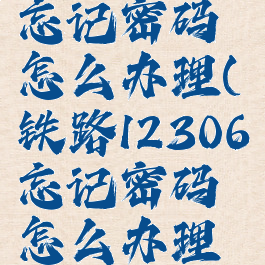 忘记密码
怎么办理(
铁路12306
忘记密码
怎么办理